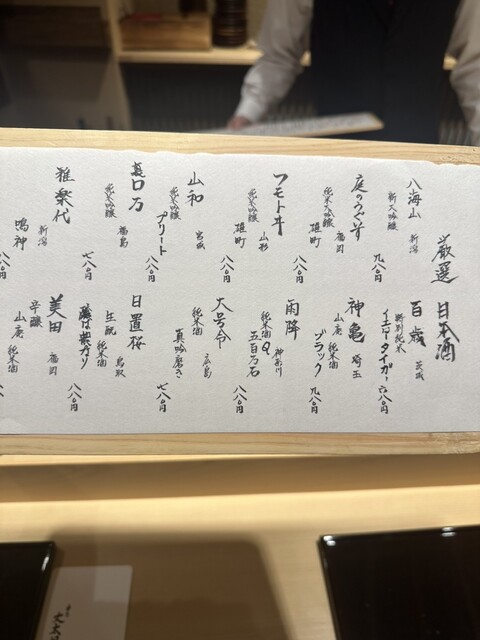 厳選 日本酒
八海山 新潟
純大吟醸 九八〇円
百歳 茨城
特別純米
イエロータイガー 六八〇円
庭のうぐいす 福岡
純米大吟醸
神亀 埼玉
山廃 純米酒
ブラック 九八〇円
フモトヰ 山形
純米吟醸 雄町 八八〇円
雨降 神奈川
純米酒
五百万石 八八〇円
山和 宮城
純米吟醸 八八〇円
大号令 広島
純米酒
真吟磨き
裏ロ万 福島
純米吟醸
プリート 八八〇円
日置桜 鳥取
生酛 純米酒 七八〇円
雅楽代 新潟
鳴神 七八〇円
美田 福岡
辛醸 八八〇円
山廃 純米酒